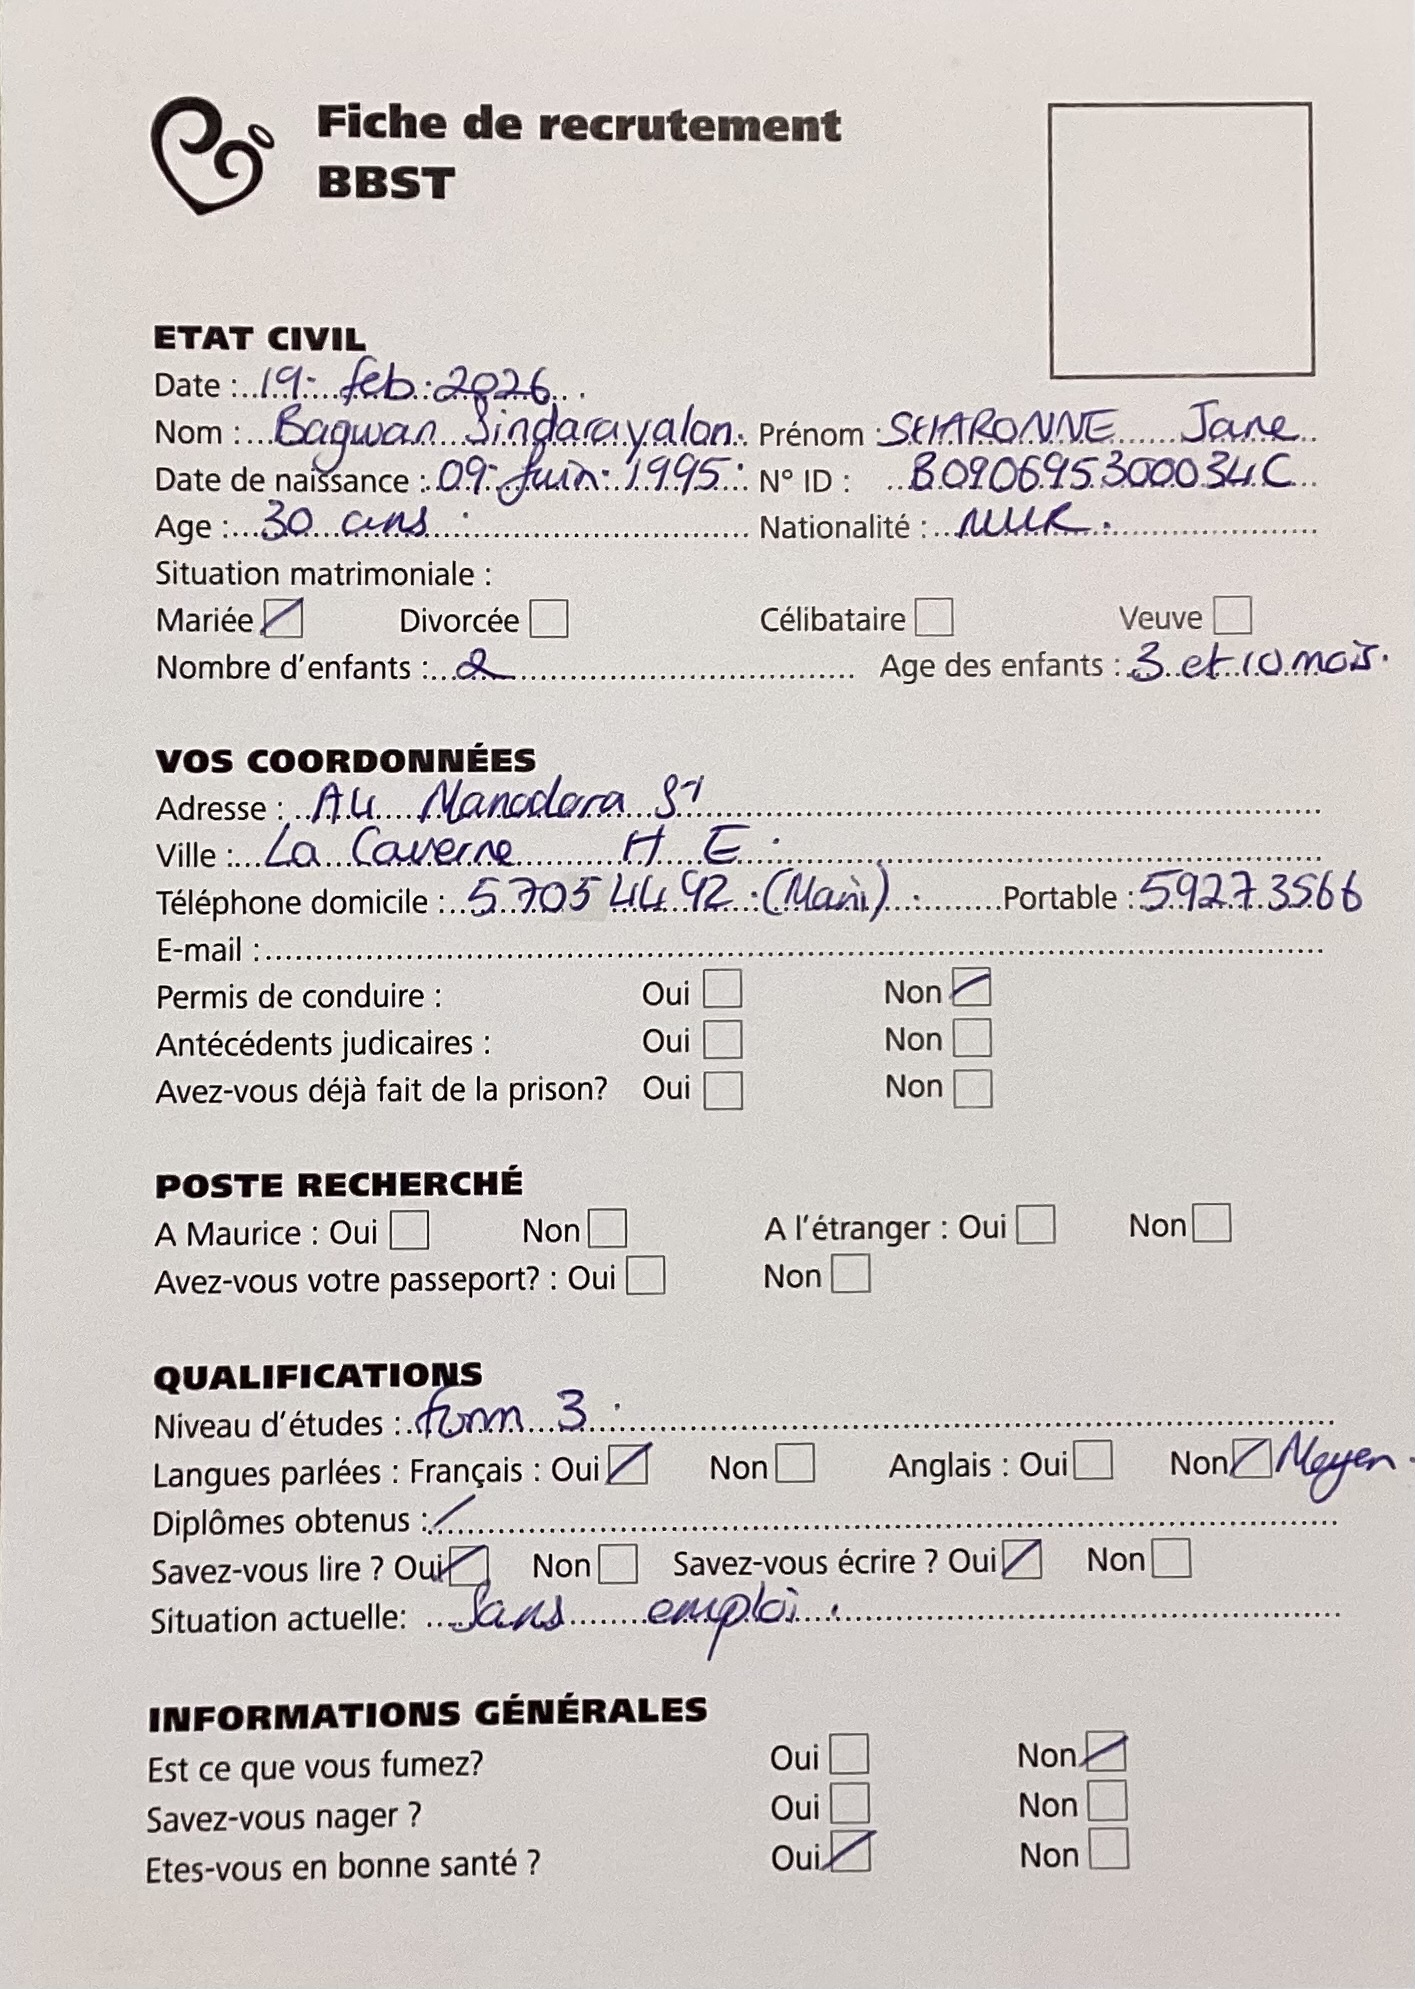 Fiche de recrutement
BBST
ETAT CIVIL
Date : 19 feb 2026
Nom : Bagwan Sindarayalon Prénom : SHARONNE Jane
Date de naissance : 09 Juin 1995 N° ID : B090695300034C
Age : 30 ans Nationalité : MUR
Situation matrimoniale :
Mariée Divorcée Célibataire Veuve
Nombre d'enfants : 2 Age des enfants : 3 et 10 mois.
VOS COORDONNÉES
Adresse : A4 St
Ville : La Caverne
Téléphone domicile : 5705 4492 (Mari) Portable : 5927 3566
E-mail :
Permis de conduire : Oui Non
Antécédents judicaires : Oui Non
Avez-vous déjà fait de la prison? Oui Non
POSTE RECHERCHÉ
A Maurice : Oui Non A l'étranger : Oui Non
Avez-vous votre passeport? : Oui Non
QUALIFICATIONS
Niveau d'études : form 3
Langues parlées : Français : Oui Non Anglais : Oui Non Moyen.
Diplômes obtenus : /
Savez-vous lire ? Oui Non Savez-vous écrire ? Oui Non
Situation actuelle: Sans emploi.
INFORMATIONS GÉNÉRALES
Est ce que vous fumez? Oui Non
Savez-vous nager ? Oui Non
Etes-vous en bonne santé ? Oui Non